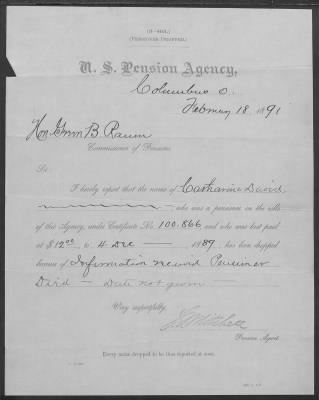 (PENSIONER DROPPED.)
U. S. Pension Agency,
Columbus O.
February 18 1891
Hon. Green B. Raum
Commissioner of Pensions.
Sir:
I hereby report that the name of Catharine David
who was a pensioner on the rolls
of this Agency, under Certificate No. 100.866 and who was last paid
at $12.00 to 4 Dec — 1889, has been dropped
because of Information received Pensioner
Died — Date not given —
Very respectfully,
Mitchell
Pension Agent.
Every name dropped to be thus reported at once.